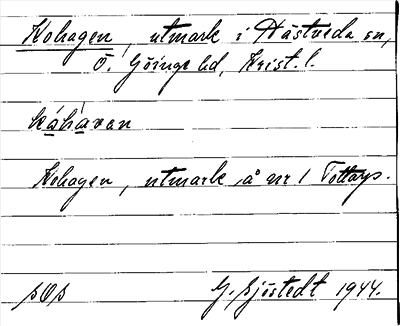 Kohagen, utmark i Hästveda sn,
Ö. Göinge hd, Krist. l.
kåhavan
Kohagen, utmark å nr 1 Tottarp.
sOs G. Sjöstedt 1944.